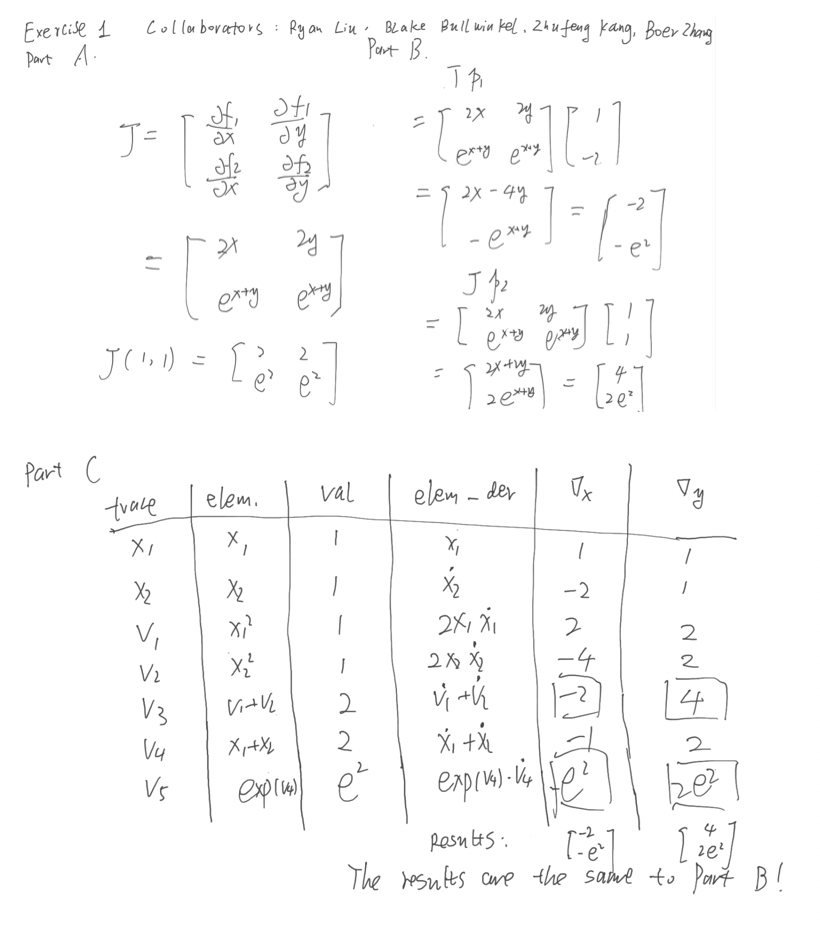 Exercise 1 Collaborators: Ryan Liu, Blake Bullwinkel, Zhufeng Kang, Boer Zhang
Part A.
J = [ ∂f₁/∂x ∂f₁/∂y
∂f₂/∂x ∂f₂/∂y ]
= [ 2x 2y
e^(x+y) e^(x+y) ]
J(1,1) = [ 2 2
e² e² ]
Part B.
J p₁
= [ 2x 2y
e^(x+y) e^(x+y) ] [ 1
-2 ]
= [ 2x - 4y
- e^(x+y) ] = [ -2
- e² ]
J p₂
= [ 2x 2y
e^(x+y) e^(x+y) ] [ 1
1 ]
= [ 2x+2y
2e^(x+y) ] = [ 4
2e² ]
Part C
trace elem. val elem_der ∇x ∇y
x₁ x₁ 1 ẋ₁ 1 1
x₂ x₂ 1 ẋ₂ -2 1
v₁ x₁² 1 2x₁ ẋ₁ 2 2
v₂ x₂² 1 2x₂ ẋ₂ -4 2
v₃ v₁+v₂ 2 v̇₁+v̇₂ -2 4
v₄ x₁+x₂ 2 ẋ₁+ẋ₂ -1 2
v₅ exp(v₄) e² exp(v₄)·v̇₄ -e² 2e²
Results: [ -2 [ 4
-e² ] 2e² ]
The results are the same to Part B!